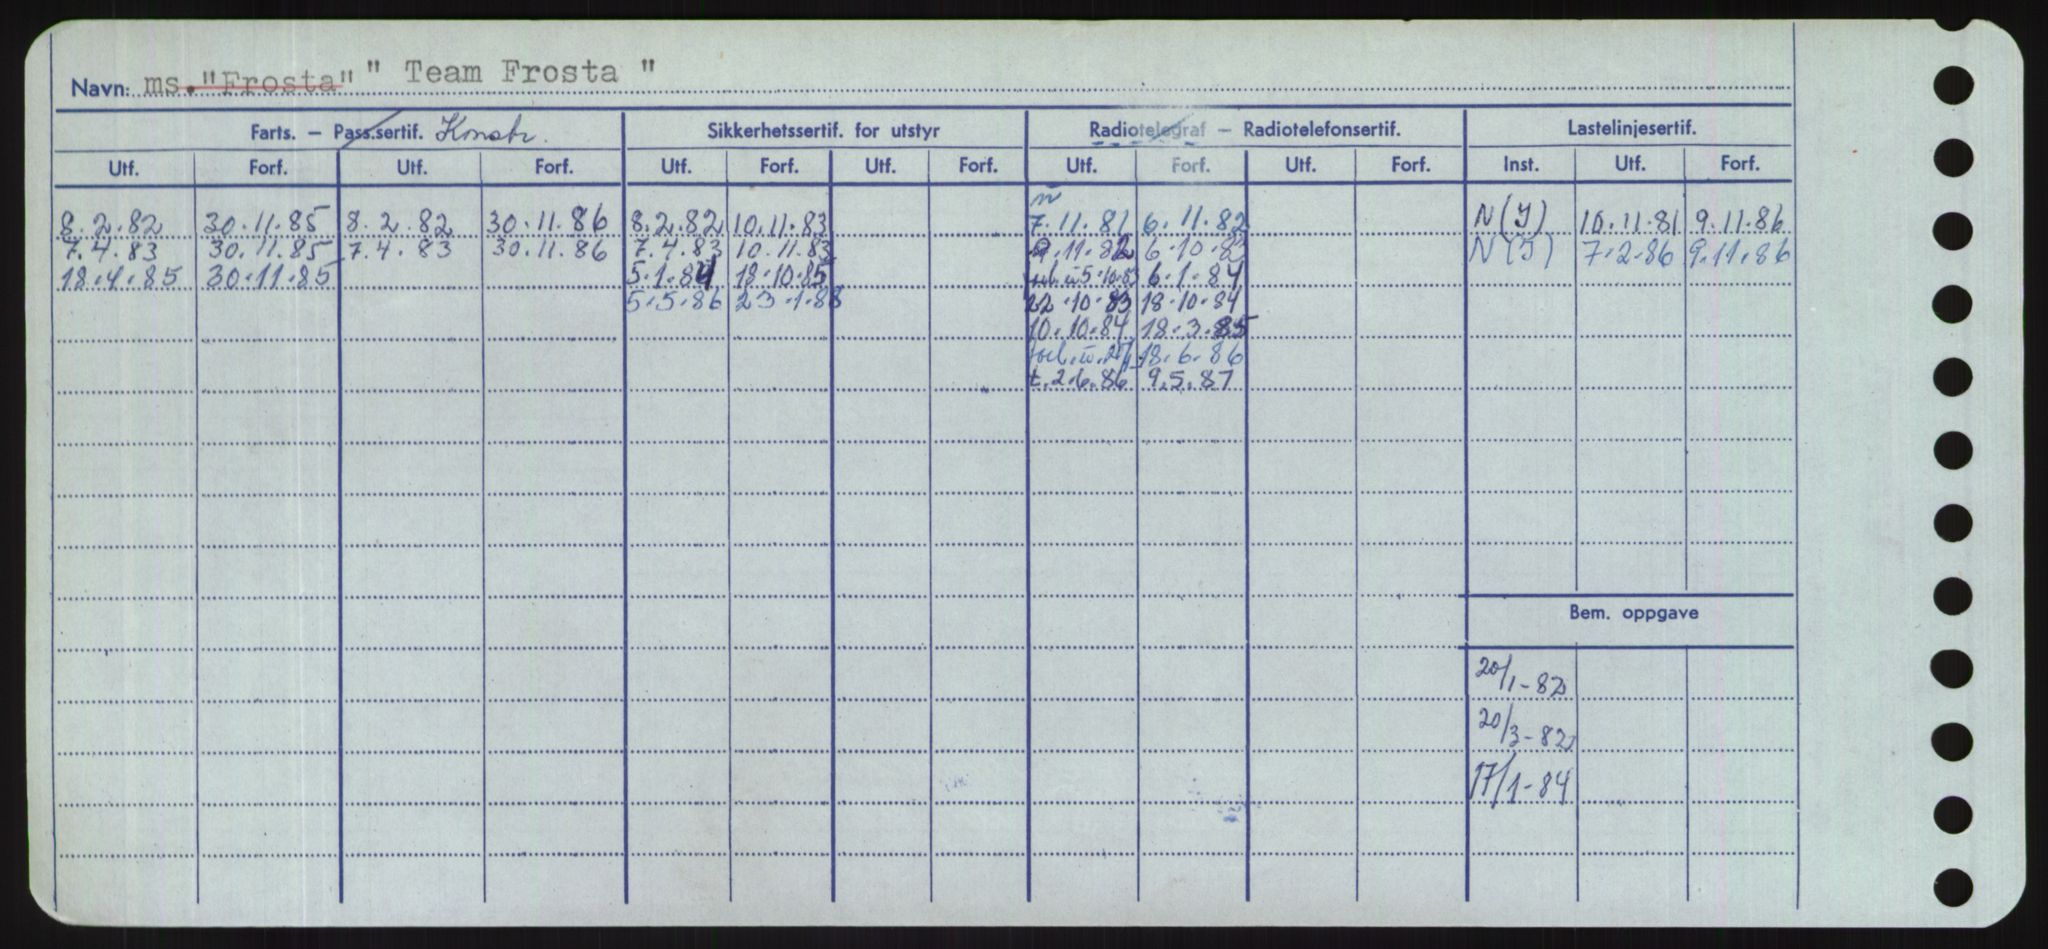 Navn: ms. "Frosta" " Team Frosta "
Farts. – Pass.sertif. Konstr. Sikkerhetssertif. for utstyr Radiotelegraf – Radiotelefonsertif. Lastelinjesertif.
Utf. Forf. Utf. Forf. Utf. Forf. Utf. Forf. Utf. Forf. Utf. Forf. Inst. Utf. Forf.
8.2.82 30.11.85 8.2.82 30.11.86 8.2.82 10.11.83 7.11.81 6.11.82 N(J) 10.11.81 9.11.86
7.4.83 30.11.85 7.4.83 30.11.86 7.4.83 10.11.83 9.11.82 6.10.83 N(J) 7.2.86 9.11.86
18.4.85 30.11.85 5.1.84 18.10.85 5.10.83 6.1.84
5.5.86 23.1.88 22.10.83 18.10.84
10.10.84 18.3.85
18.6.86
t.2.6.86 9.5.87
Bem. oppgave
20/1-82
20/3-82
17/1-84